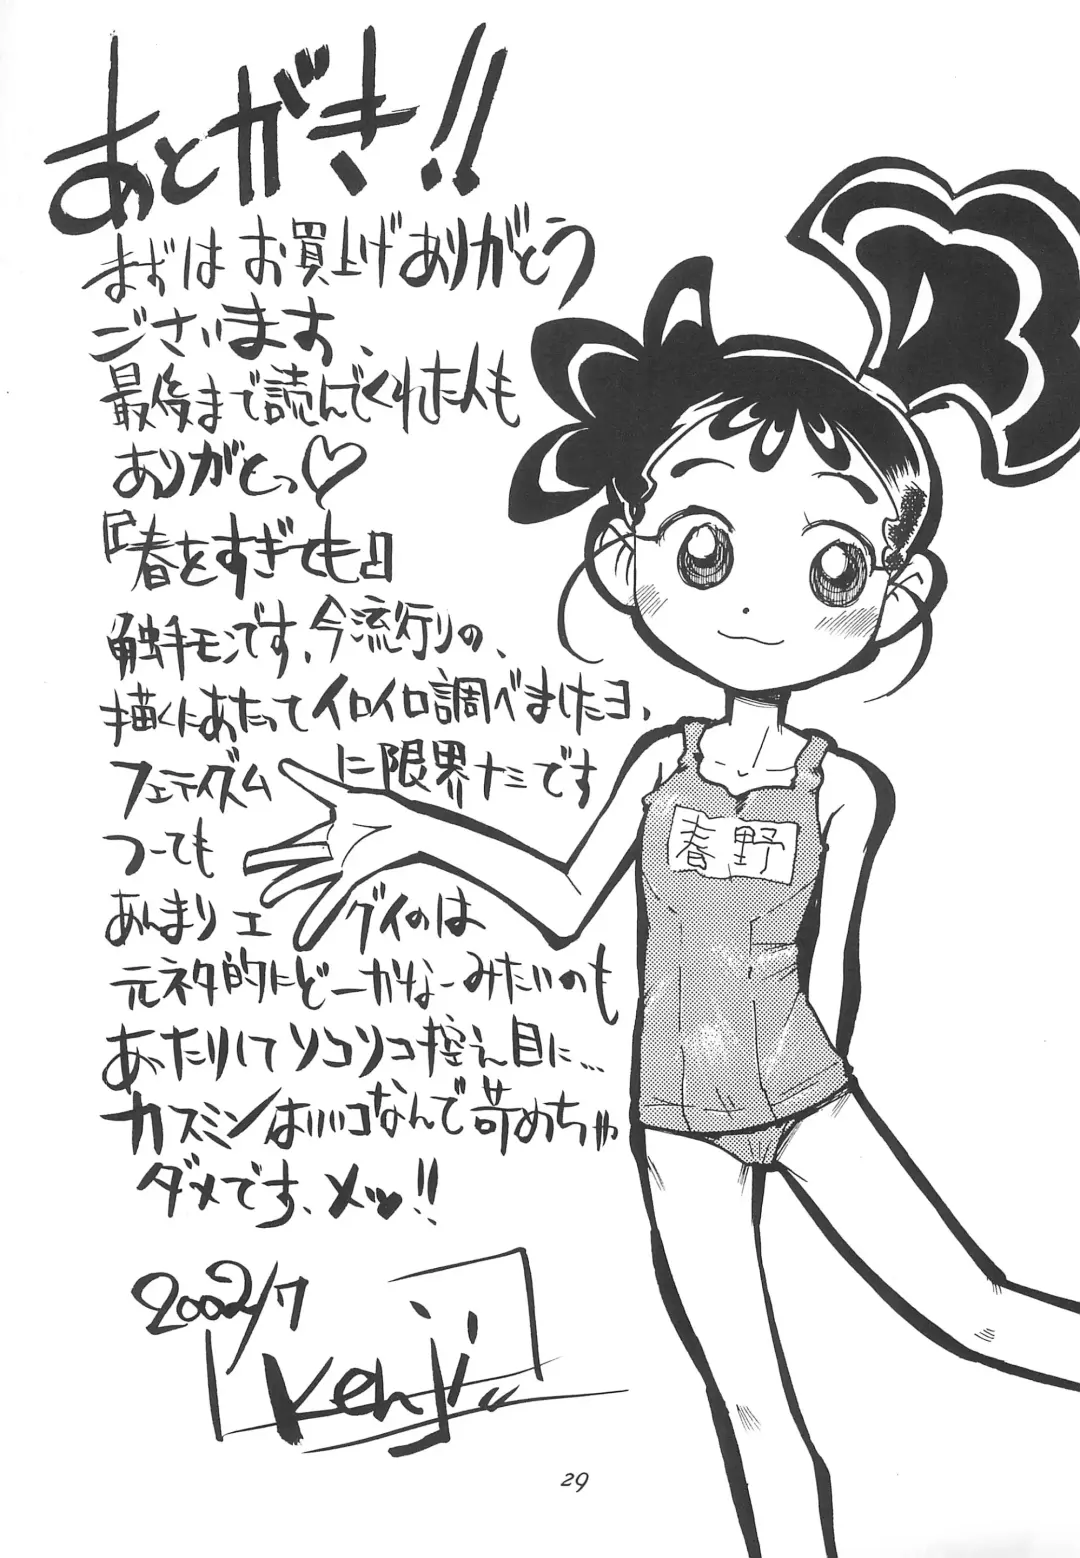 あとがき!!
まずはお買上げありがとう
ございます、
最後まで読んでくれた人も
ありがとっ♡
『春をすぎても』
触手モンです、今流行りの、
描くにあたってイロイロ調べましたヨ、
フェティズムに限界ナシです
つーても
あんまりエグイのは
元ネタ的にどーかなーみたいのも
あったりしてソコソコ控え目に…
カスミンはいいコなんで苛めちゃ
ダメです、メッ!!
2002/7
Kenji
春野
29